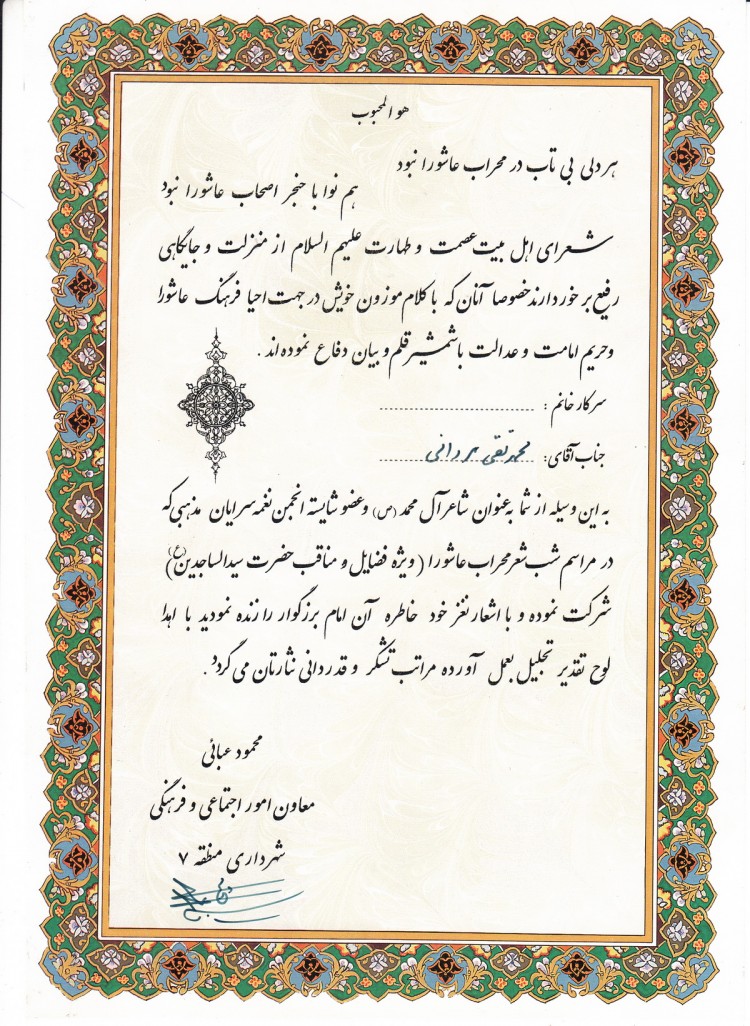 هو المحبوب
هر دلی بی تاب در محراب عاشورا نبود
هم نوا با خنجر اصحاب عاشورا نبود
شعرای اهل بیت عصمت و طهارت علیهم السلام از منزلت و جایگاهی
رفیع برخوردارند خصوصا آنان که با کلام موزون خویش در جهت احیا فرهنگ عاشورا
و حریم امامت و عدالت با شمشیر قلم و بیان دفاع نموده اند .
سرکار خانم :
جناب آقای: محمد تقی مردانی
به این وسیله از شما به عنوان شاعر آل محمد (ص) و عضو شایسته انجمن نغمه سرایان مذهبی که
در مراسم شب شعر محراب عاشورا ( ویژه فضایل و مناقب حضرت سید الساجدین (ع) )
شرکت نموده و با اشعار نغز خود خاطره آن امام بزرگوار را زنده نمودید با اهدا
لوح تقدیر تجلیل بعمل آورده مراتب تشکر و قدردانی نثارتان می گردد .
محمود عبائی
معاون امور اجتماعی و فرهنگی
شهرداری منطقه ۷